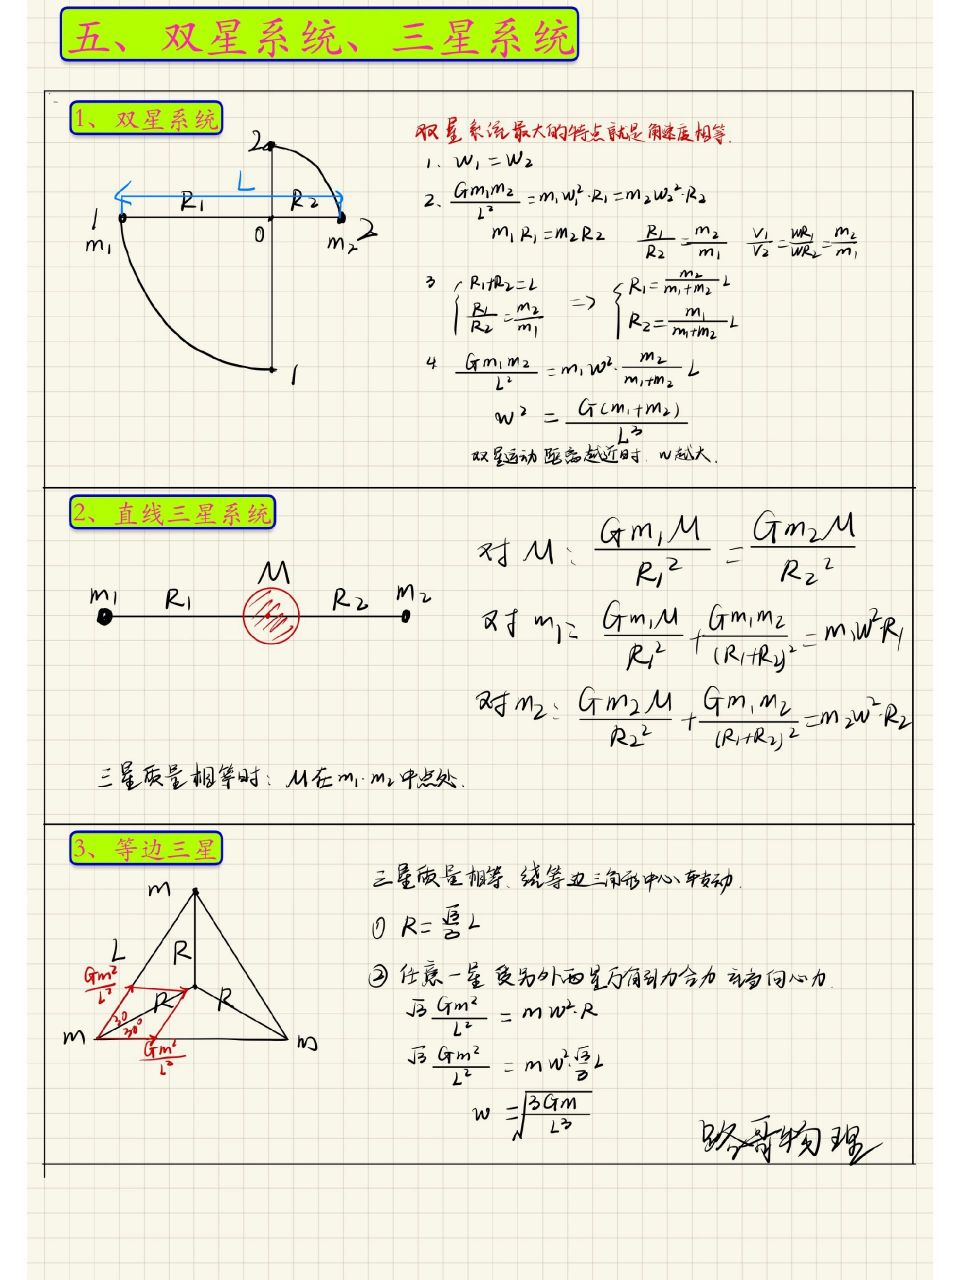 五、双星系统、三星系统
1、双星系统
2
L
R₁ R₂
1 0 2
m₁ m₂
1
双星系统最大的特点就是角速度相等.
1. w₁=w₂
2. Gm₁m₂/L²=m₁w₁²·R₁=m₂w₂²·R₂
m₁R₁=m₂R₂ R₁/R₂=m₂/m₁ V₁/V₂=wR₁/wR₂=m₂/m₁
3 { R₁+R₂=L => { R₁=m₂/(m₁+m₂) L
R₁/R₂=m₂/m₁ R₂=m₁/(m₁+m₂) L
4 Gm₁m₂/L²=m₁w²·m₂/(m₁+m₂) L
w²=G(m₁+m₂)/L³
双星运动距离越近时 w越大.
2、直线三星系统
M
m₁ R₁ R₂ m₂
对M: Gm₁M/R₁²=Gm₂M/R₂²
对m₁: Gm₁M/R₁²+Gm₁m₂/(R₁+R₂)²=m₁w²R₁
对m₂: Gm₂M/R₂²+Gm₁m₂/(R₁+R₂)²=m₂w²·R₂
三星质量相等时: M在m₁·m₂中点处.
3、等边三星
m
L
R
Gm²/L²
R R
30
30°
m m
Gm²/L²
三星质量相等、绕等边三角形中心转动.
① R=√3/3 L
② 任意一星受另外两星万有引力合力充当向心力
√3 Gm²/L²=mw²·R
√3 Gm²/L²=mw²·√3/3 L
w=√(3Gm/L³)
路哥物理